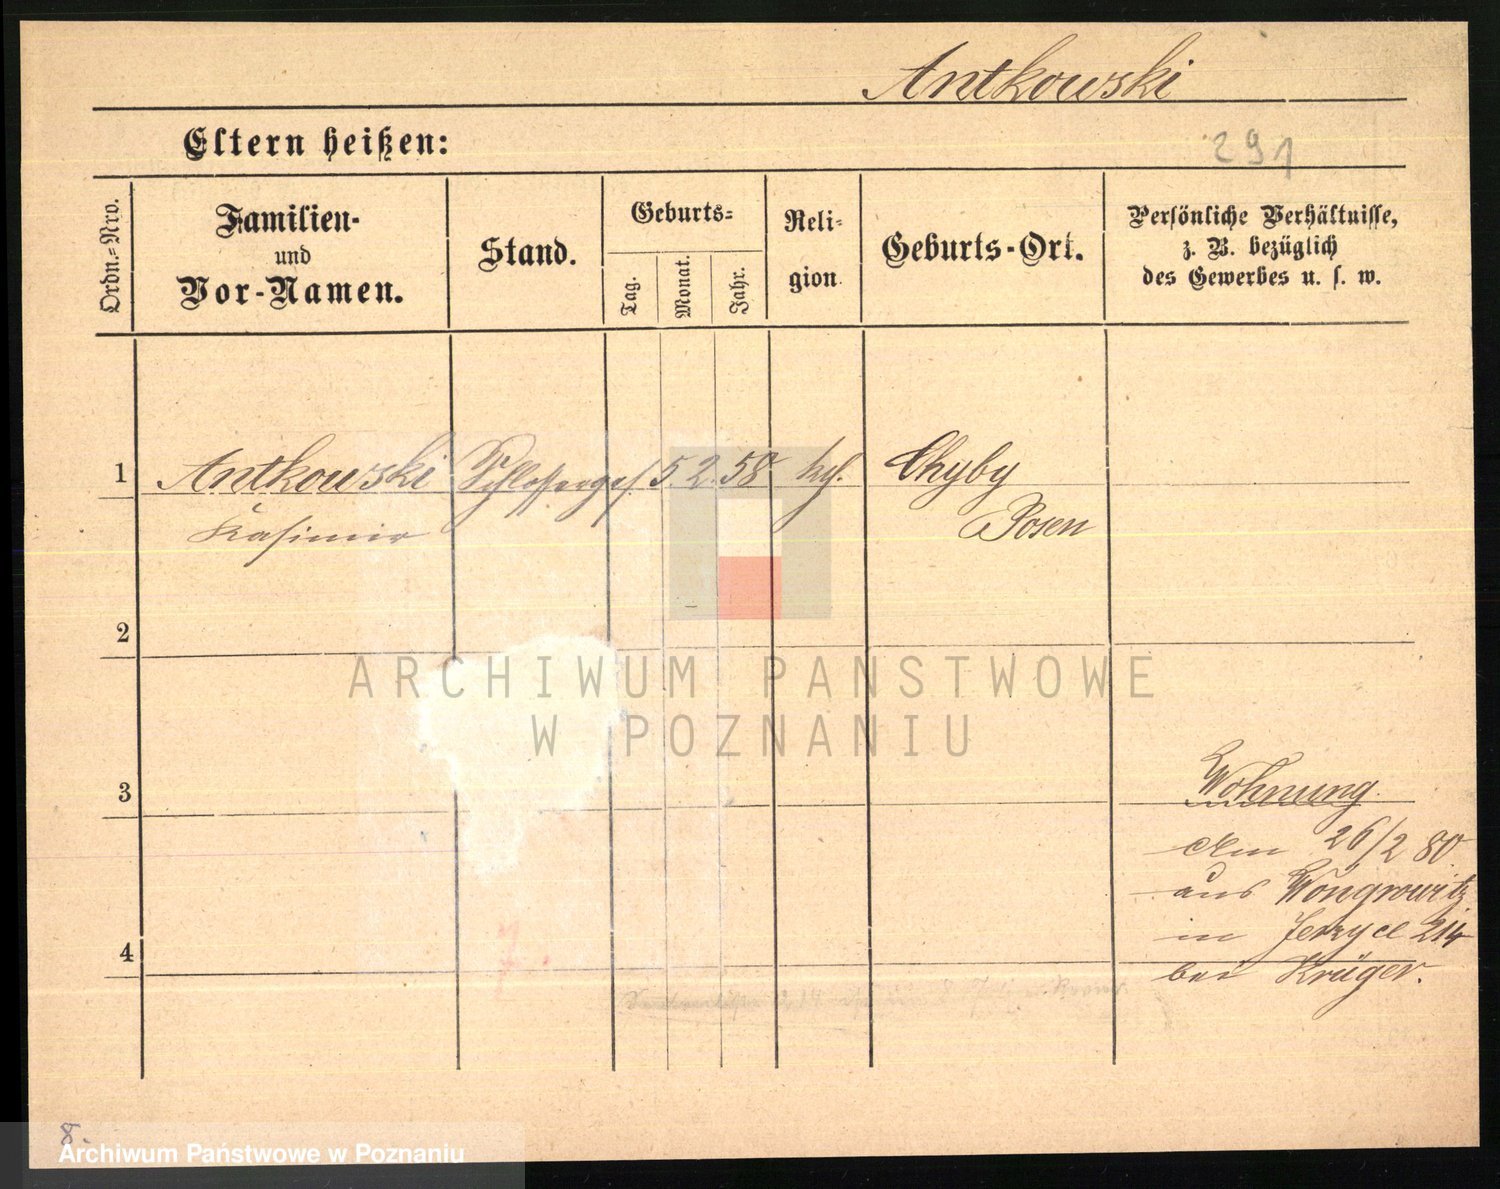 Antkowski
Eltern heißen:
291
Ordn.-Nro.
Familien-
und
Vor-Namen.
Stand.
Geburts-
Tag.
Monat.
Jahr.
Reli-
gion.
Geburts-Ort.
Persönliche Verhältnisse,
z. B. bezüglich
des Gewerbes u. s. w.
1 Antkowski Schlosserges. 5 2. 58 kth. Chyby
Kasimir Posen
2
ARCHIWUM PANSTWOWE
W POZNANIU
3 Wohnung.
Am 26/2 80
aus Wongrowitz
in Jerzyce 214
4
bei Krüger.
8.
Archiwum Państwowe w Poznaniu